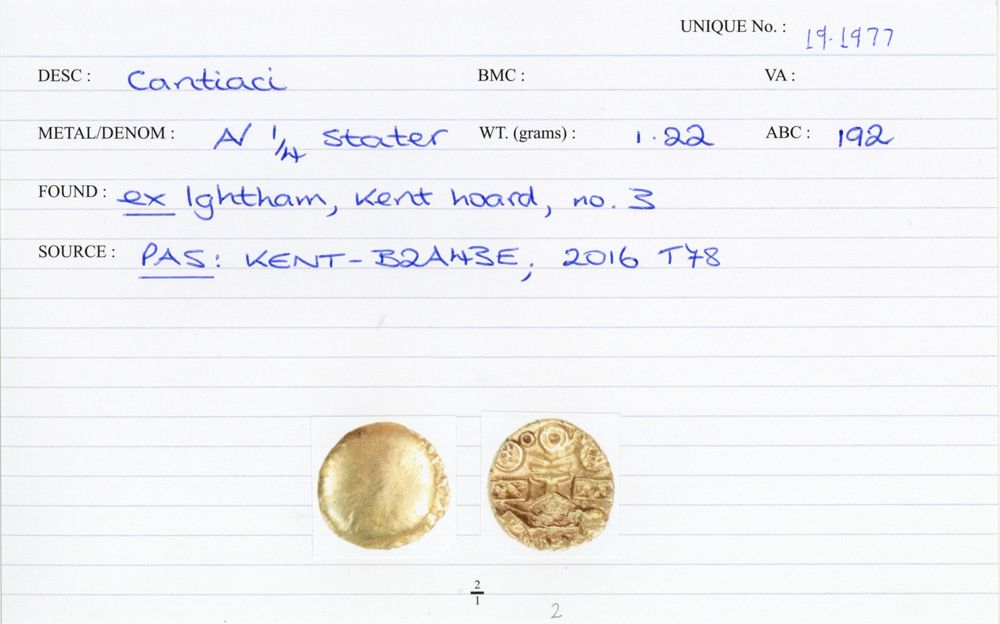 UNIQUE No. : 19.1977
DESC : Cantiaci BMC : VA :
METAL/DENOM : A/ 1/4 Stater WT. (grams) : 1.22 ABC : 192
FOUND : ex Ightham, Kent hoard, no. 3
SOURCE : PAS: KENT-B2A43E; 2016 T78
2/1
2